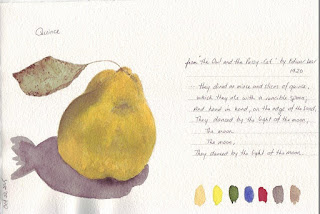 Quince
from "The Owl and the Pussy-Cat" by Edward Lear
1920
They dined on mince and slices of quince,
which they ate with a runcible spoon;
And hand in hand, on the edge of the sand,
They danced by the light of the moon,
The moon
The moon,
They danced by the light of the moon.